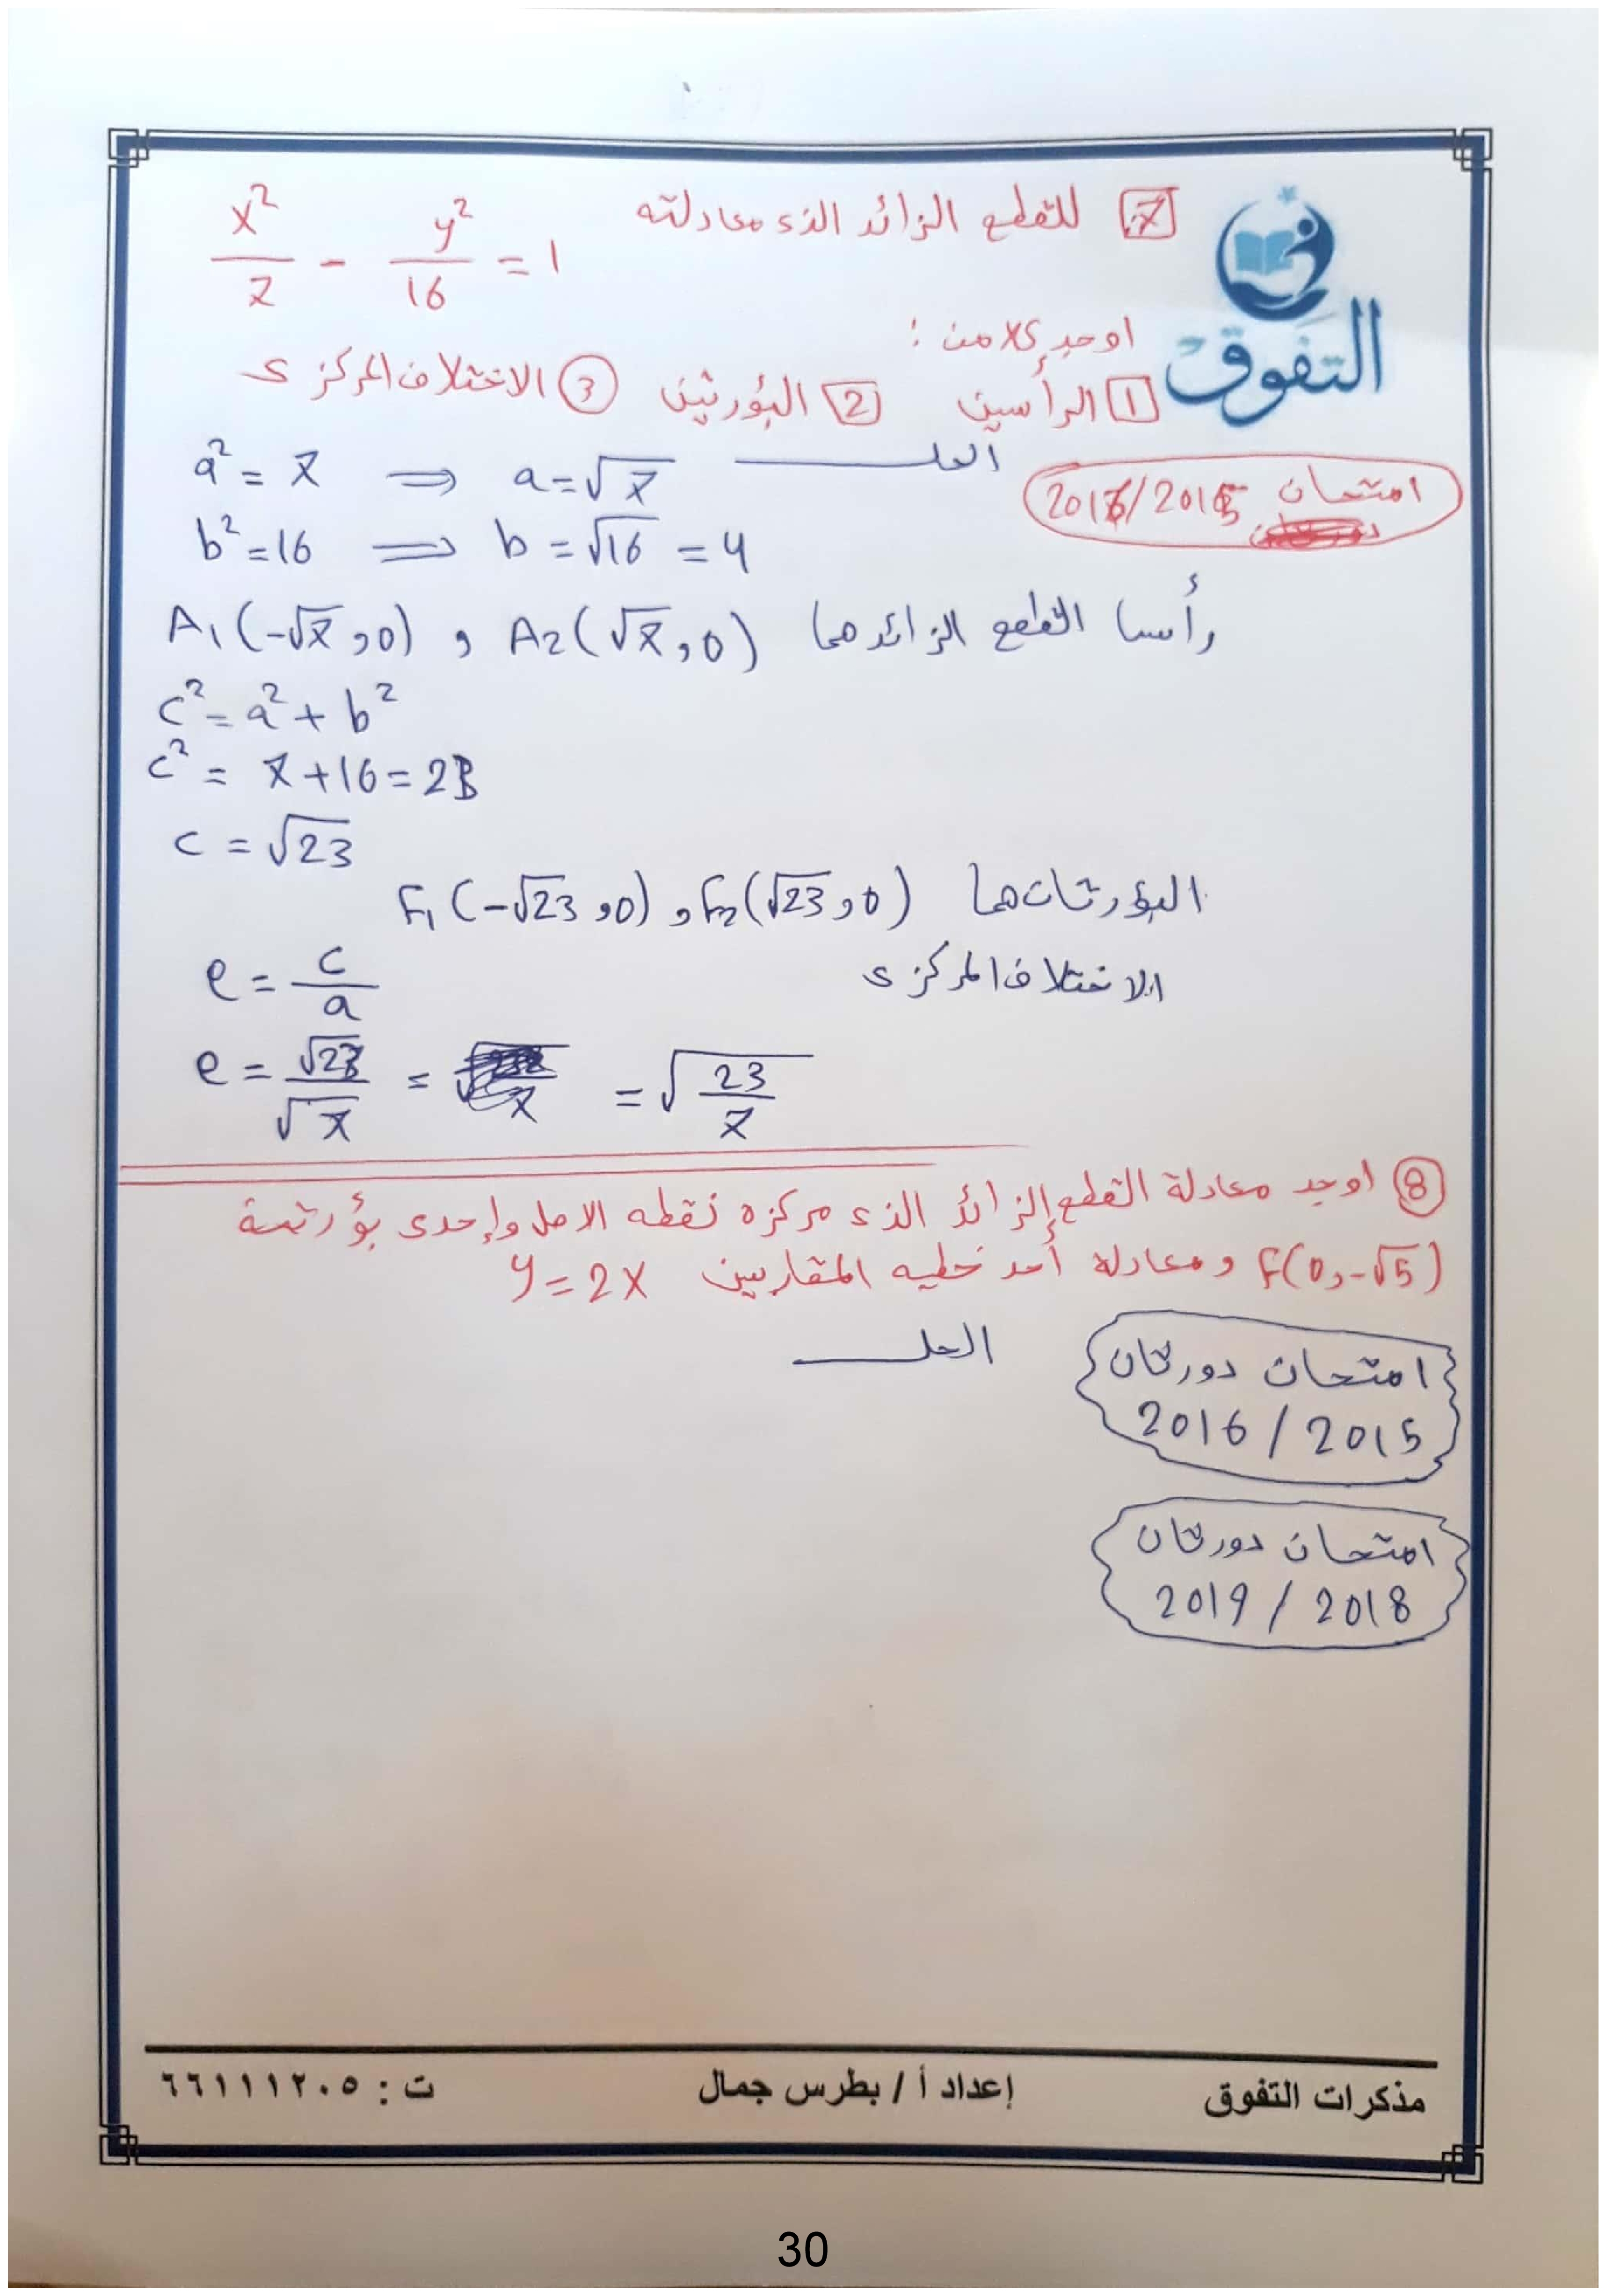 7 للقطع الزائد الذي معادلته x²/7 - y²/16 = 1
التفوق
اوجد كلا من :
1 الرأسين 2 البؤرتين 3 الاختلاف المركزى
الحل
امتحان 2016/2015
a² = 7 ⇒ a = √7
b² = 16 ⇒ b = √16 = 4
رأسا القطع الزائد هما A1(-√7,0) , A2(√7,0)
c² = a² + b²
c² = 7+16 = 23
c = √23
البؤرتان هما F1(-√23,0) , F2(√23,0)
الاختلاف المركزى e = c/a
e = √23/√7 = √(23/7)
8 اوجد معادلة القطع الزائد الذي مركزه نقطه الاصل وإحدى بؤرتية
F(0,-√5) ومعادلة أحد خطيه المقاربين y=2x
الحل
امتحان دور ثان
2016 / 2015
امتحان دور ثان
2019 / 2018
مذكرات التفوق إعداد أ / بطرس جمال ت : ٦٦١١١٢٠٥
30